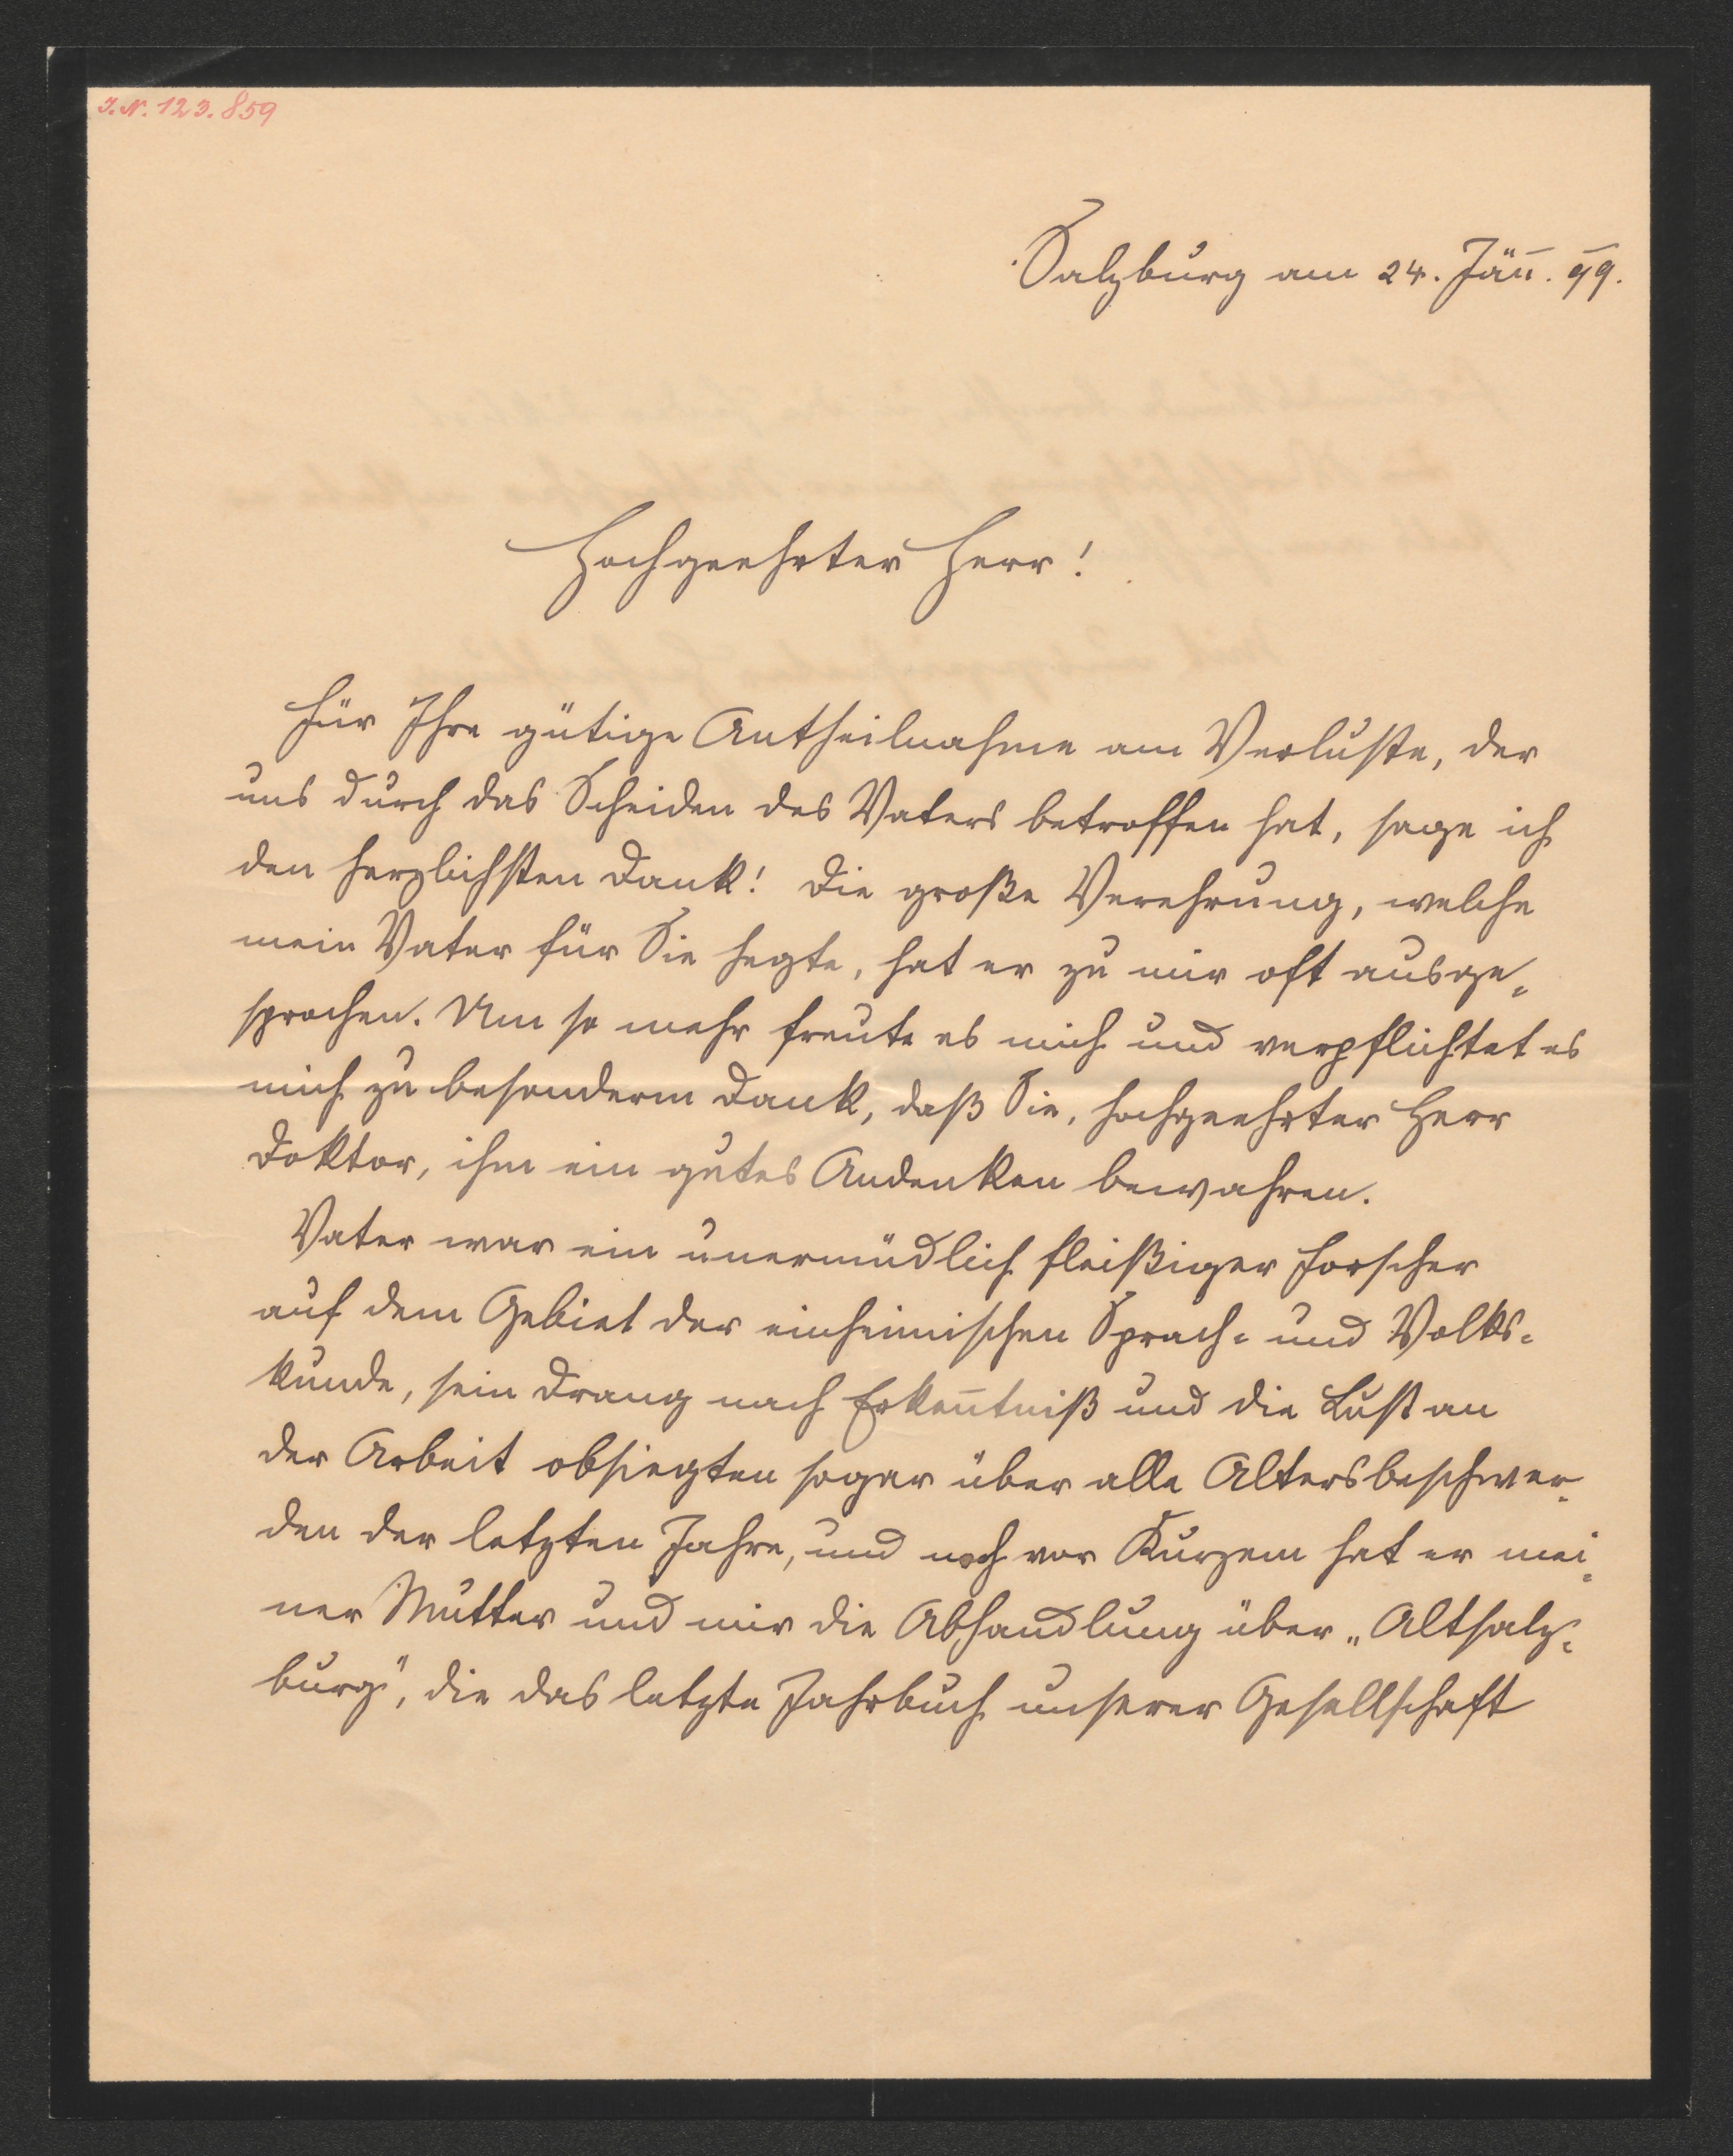 I.N. 123.859
Salzburg am 24. Jän̄. 99.
Hochgeehrter Herr!
Für Ihre gütige Antheilnahme am Verluste, der
uns durch das Scheiden des Vaters betroffen hat, sage ich
den herzlichsten Dank! Die große Verehrung, welche
mein Vater für Sie hegte, hat er zu mir oft ausge-
sprochen. Um so mehr freute es mich und verpflichtet es
mich zu besonderm Dank, daß Sie, hochgeehrter Herr
Doktor, ihm ein gutes Andenken bewahren.
Vater war ein unermüdlich fleißiger Forscher
auf dem Gebiet der einheimischen Sprach- und Volks-
kunde, sein Drang nach Erken̄tniß und die Lust an
der Arbeit obsiegten sogar über alle Altersbeschwer-
den der letzten Jahre, und noch vor Kurzem hat er mei-
ner Mutter und mir die Abhandlung über „Altsalz-
burg", die das letzte Jahrbuch unserer Gesellschaft